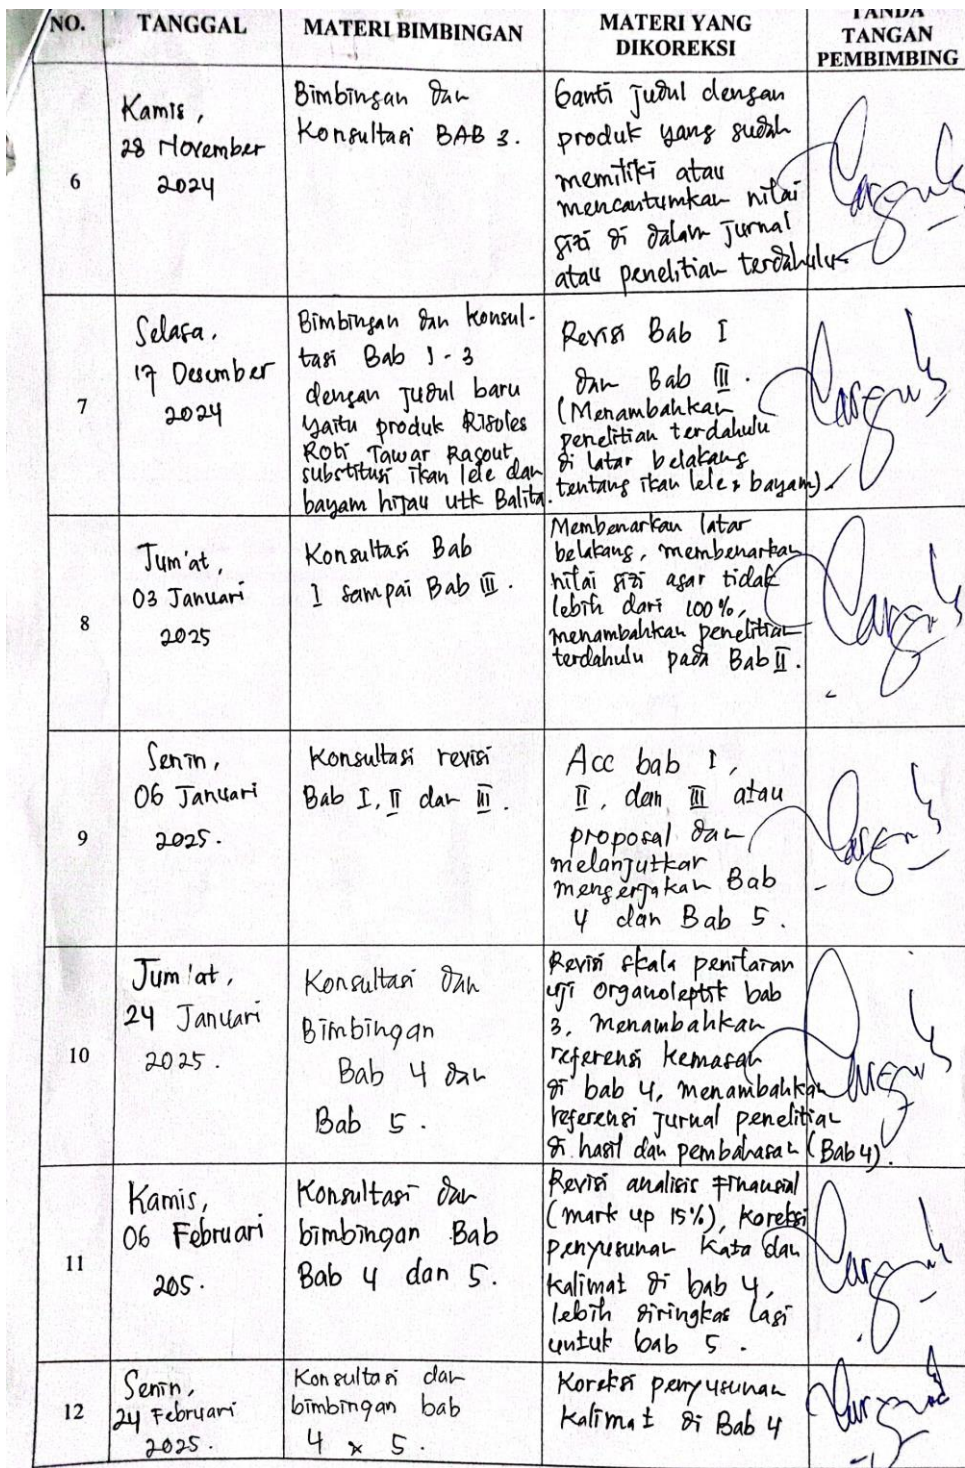 NO.
TANGGAL
MATERI BIMBINGAN
MATERI YANG
DIKOREKSI
TANDA
TANGAN
PEMBIMBING
6
Kamis,
28 November
2024
Bimbingan dan
Konsultasi BAB 3.
Ganti judul dengan
produk yang sudah
memiliki atau
mencantumkan nilai
gizi di dalam jurnal
atau penelitian terdahulu
7
Selasa,
17 Desember
2024
Bimbingan dan konsul-
tasi Bab 1 - 3
dengan judul baru
yaitu produk Risoles
Roti Tawar Ragout
substitusi ikan lele dan
bayam hijau utk Balita.
Revisi Bab I
dan Bab III.
(Menambahkan
penelitian terdahulu
di latar belakang
tentang ikan lele & bayam).
8
Jum'at,
03 Januari
2025
Konsultasi Bab
I sampai Bab III.
Membenarkan latar
belakang, membenarkan
nilai gizi agar tidak
lebih dari 100%,
menambahkan penelitian
terdahulu pada Bab II.
9
Senin,
06 Januari
2025.
Konsultasi revisi
Bab I, II dan III.
Acc bab I,
II, dan III atau
proposal dan
melanjutkan
mengerjakan Bab
4 dan Bab 5.
10
Jum'at,
24 Januari
2025.
Konsultasi dan
Bimbingan
Bab 4 dan
Bab 5.
Revisi skala penilaian
uji organoleptik bab
3, menambahkan
referensi kemasan
di bab 4, menambahkan
referensi jurnal penelitian
di hasil dan pembahasan (Bab 4).
11
Kamis,
06 Februari
205.
Konsultasi dan
bimbingan Bab
Bab 4 dan 5.
Revisi analisis finansial
(mark up 15%), koreksi
penyusunan kata dan
kalimat di bab 4,
lebih diringkas lagi
untuk bab 5.
12
Senin,
24 Februari
2025.
Konsultasi dan
bimbingan bab
4 & 5.
Koreksi penyusunan
kalimat di Bab 4